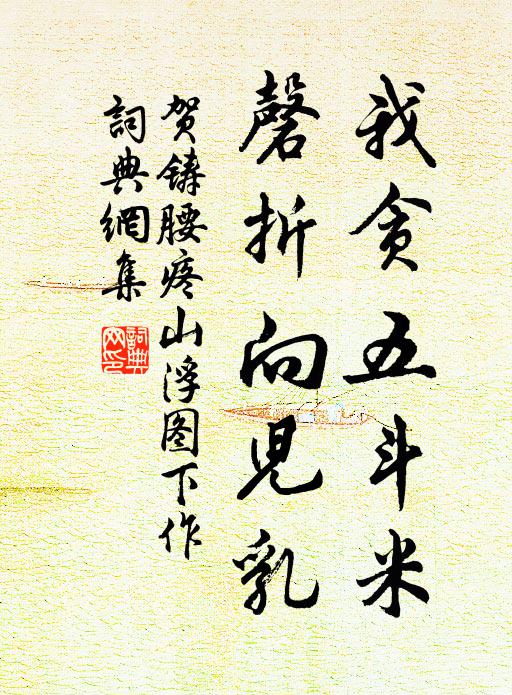 我贪五斗米
磬折向兒乳
贺铸腰疼山浮图下作
詞典網集
詞典网印